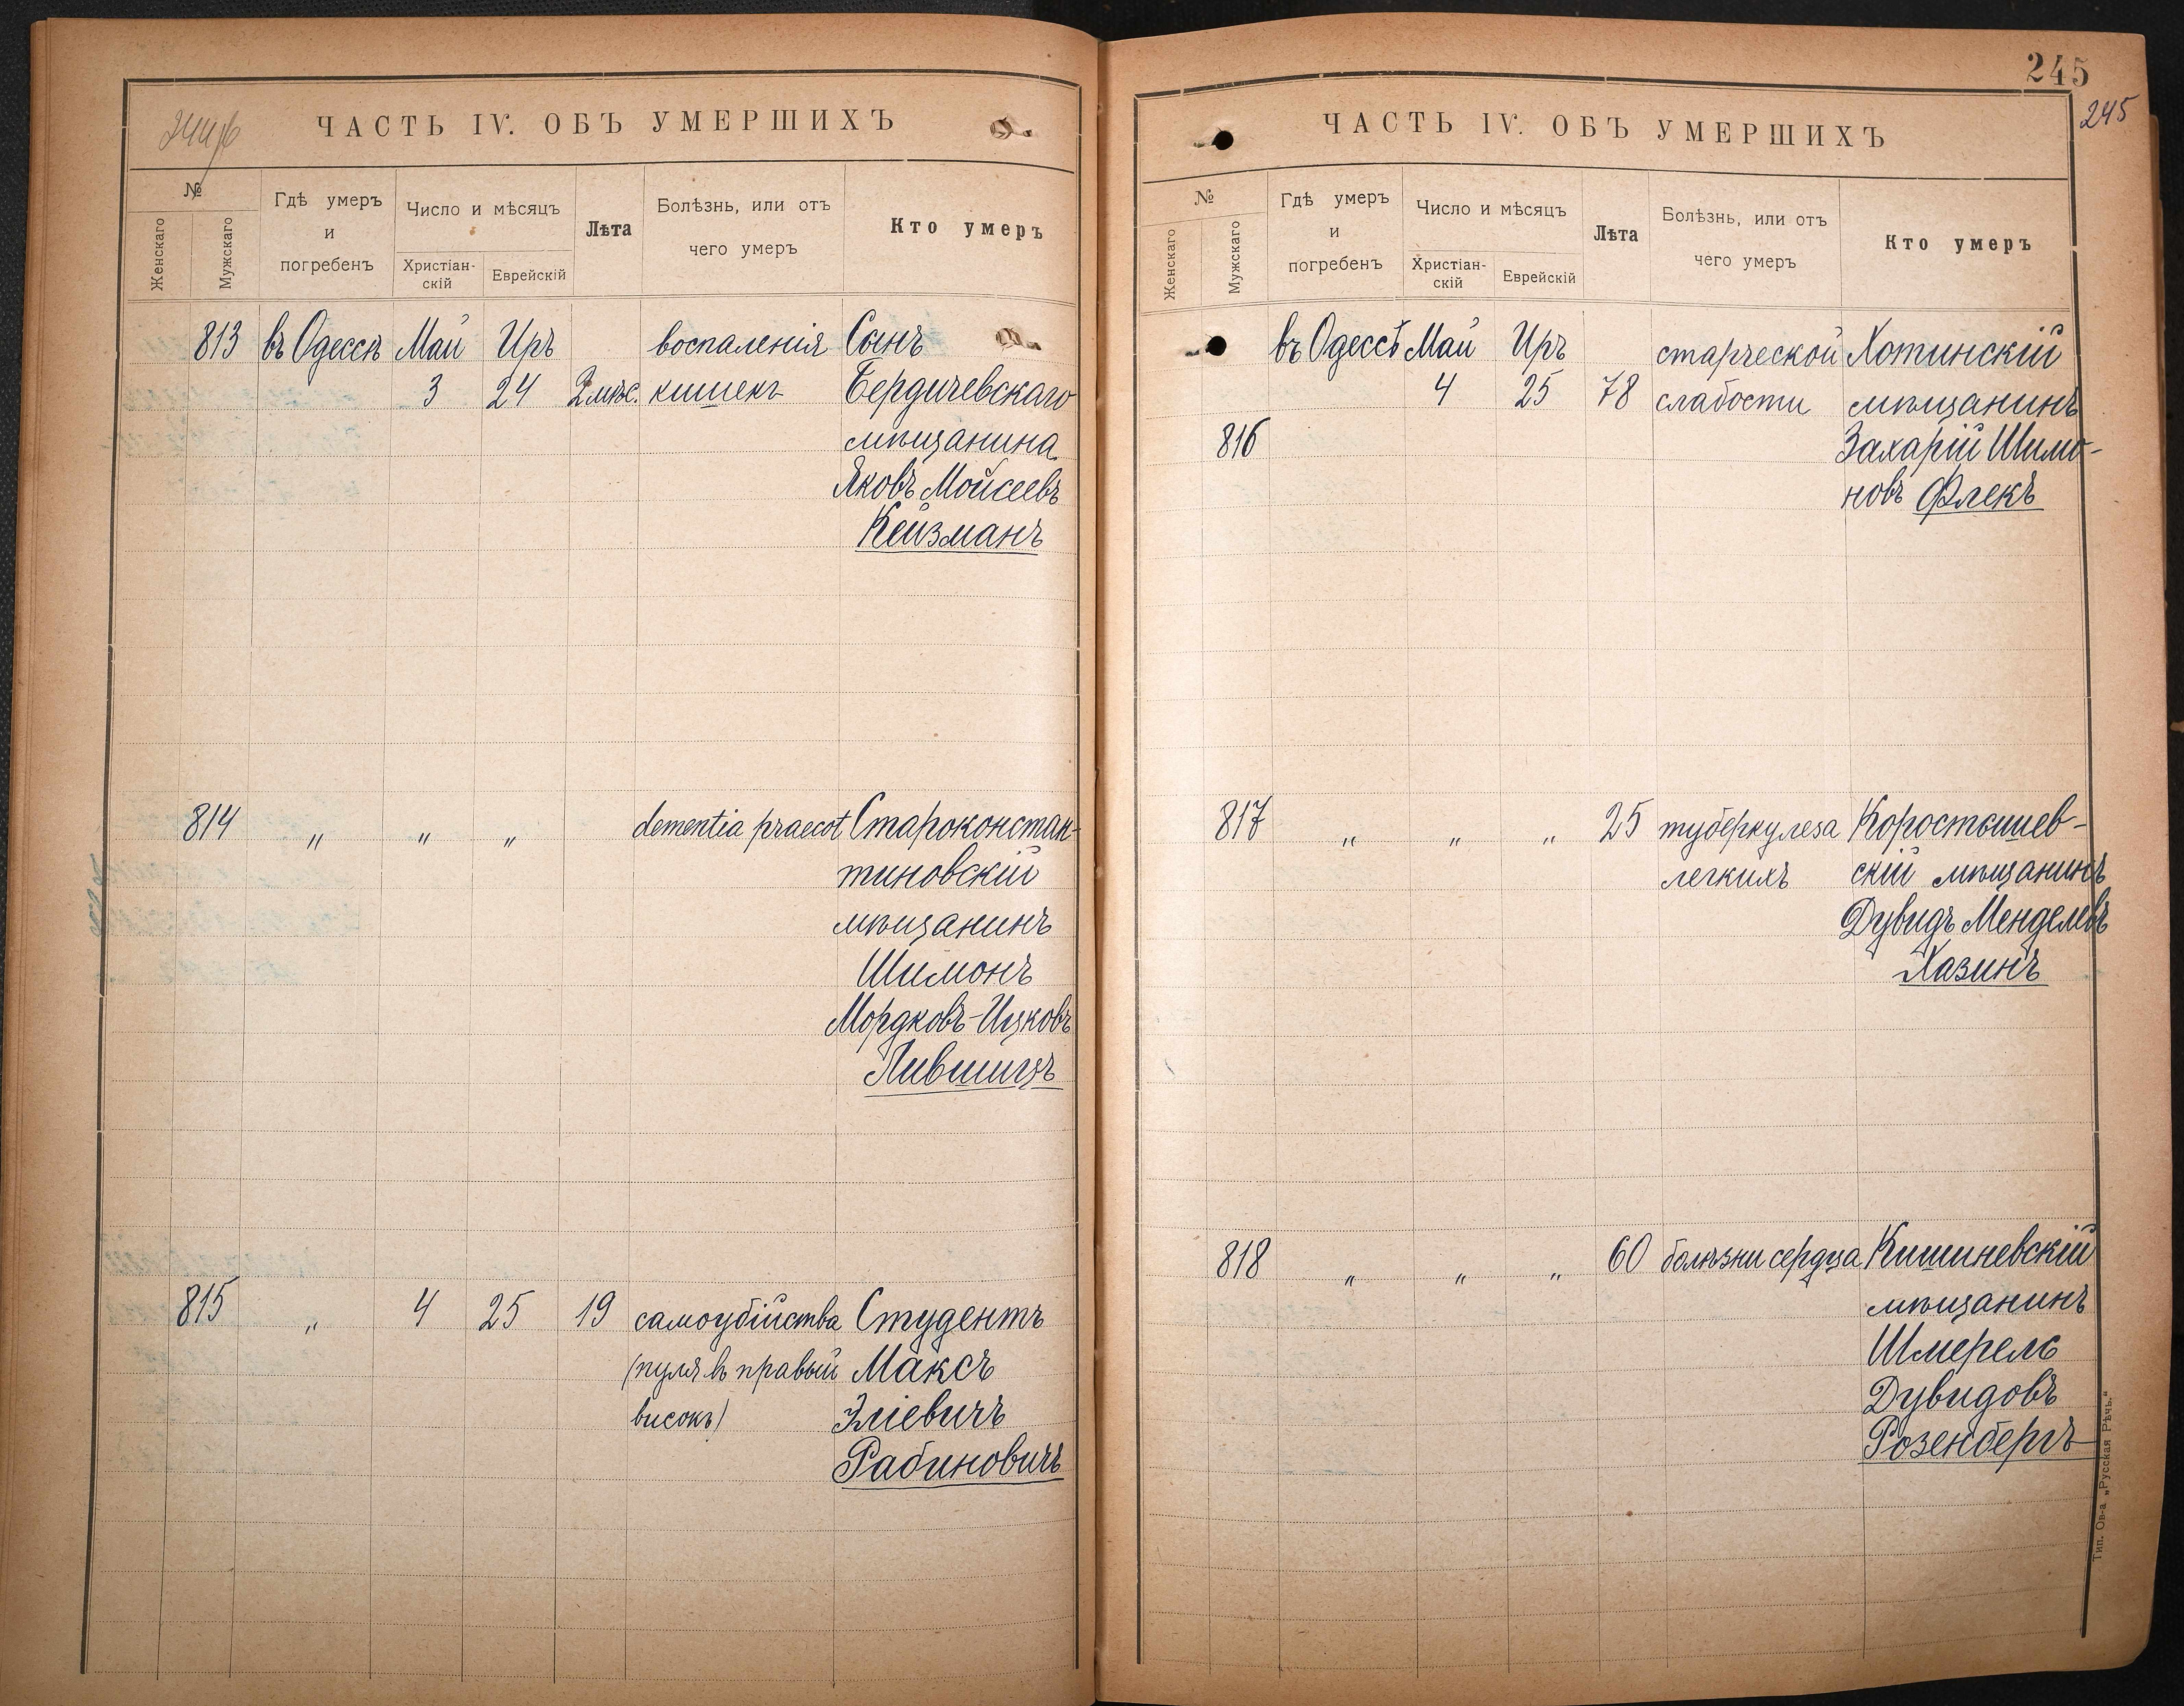 244об
ЧАСТЬ IV. ОБЪ УМЕРШИХЪ
№
Женскаго
Мужскаго
Гдѣ умеръ
и
погребенъ
Число и мѣсяцъ
Христіан-
скій
Еврейскій
Лѣта
Болѣзнь, или отъ
чего умеръ
Кто умеръ
813 въ Одессѣ Май Иръ воспаленія Сынъ
3 24 2 мѣс. кишекъ Бердичевскаго
мѣщанина
Яковъ Мойсеевъ
Кейзманъ
814 " " " dementia praecot Староконстан-
тиновскій
мѣщанинъ
Шимонъ
Мордковъ-Ицковъ
Лившицъ
815 " 4 25 19 самоубійства Студентъ
(пуля въ правый Максъ
високъ) Эліевичъ
Рабиновичъ
245
245
ЧАСТЬ IV. ОБЪ УМЕРШИХЪ
№
Женскаго
Мужскаго
Гдѣ умеръ
и
погребенъ
Число и мѣсяцъ
Христіан-
скій
Еврейскій
Лѣта
Болѣзнь, или отъ
чего умеръ
Кто умеръ
въ Одессѣ Май Иръ старческой Хотинскій
4 25 78 слабости мѣщанинъ
816 Захарій Шимо-
новъ Флекъ
817 " " " 25 туберкулеза Коростышев-
легкихъ скій мѣщанинъ
Дувидъ Менделевъ
Хазинъ
818 " " " 60 болѣзни сердца Кишиневскій
мѣщанинъ
Шмерель
Дувидовъ
Розенбергъ
Тип. Ов-а „Русская Рѣчь."